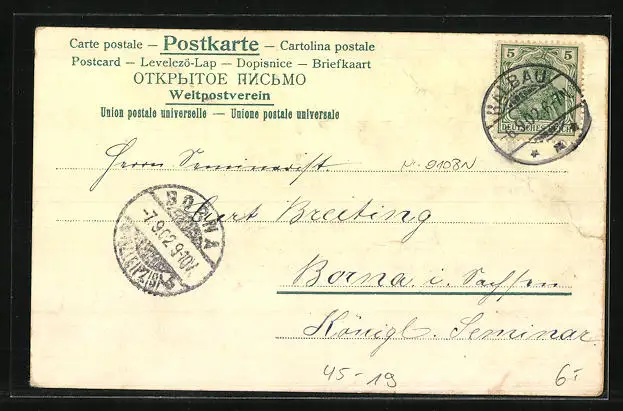 Carte postale — Postkarte — Cartolina postale
Postcard — Levelező-Lap — Dopisnice — Briefkaart
ОТКРЫТОЕ ПИСЬМО
Weltpostverein
Union postale universelle — Unione postale universale
5 5
HALBAU
DEUTSCHES REICH
Herrn Seminarist.
N-9108N
Curt Breiting
BORNA
-7.9.02.9-10V.
Borna i. Sachsen
Königl. Seminar
45-19
6.-